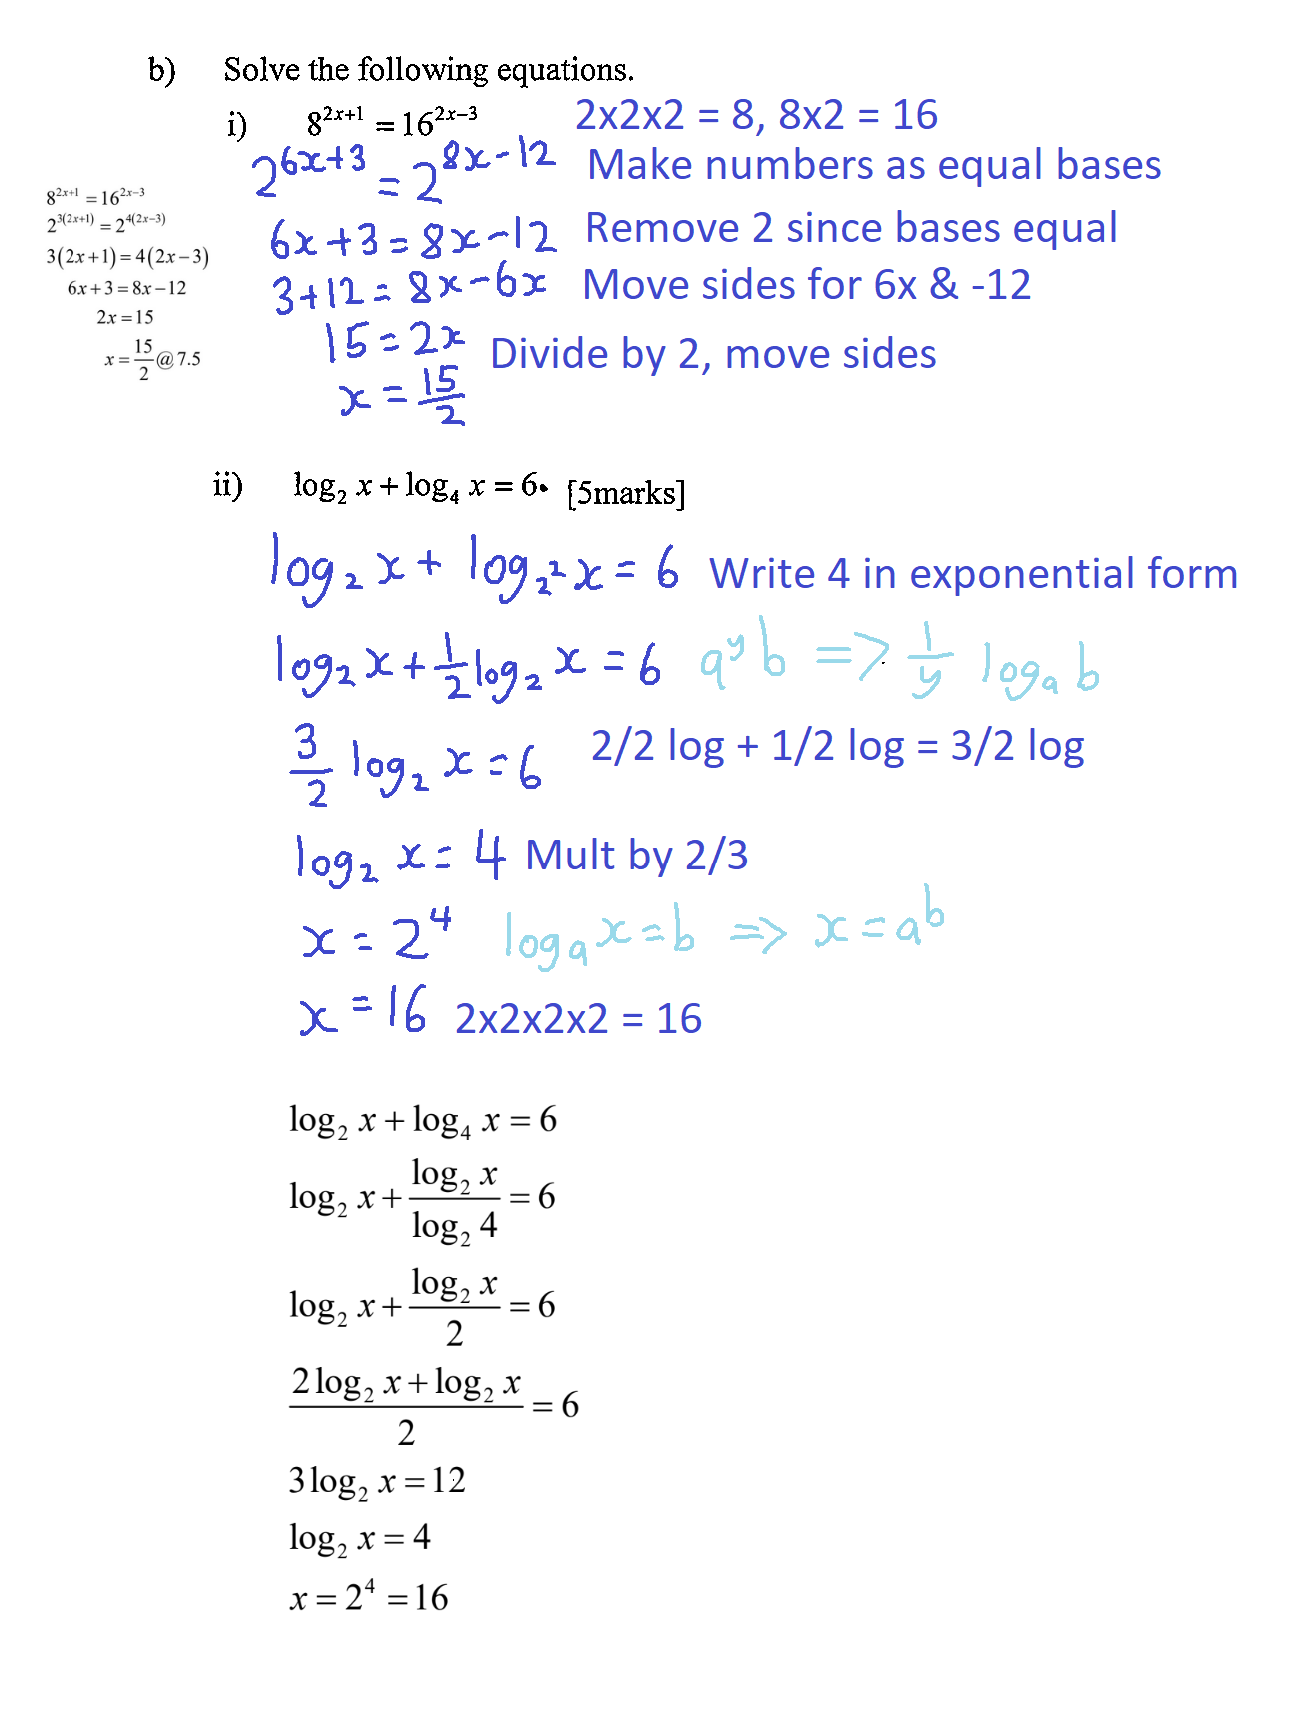 b) Solve the following equations.
i) 8^{2x+1} = 16^{2x-3} 2x2x2 = 8, 8x2 = 16
2^{6x+3} = 2^{8x-12} Make numbers as equal bases
6x+3=8x-12 Remove 2 since bases equal
3+12=8x-6x Move sides for 6x & -12
15=2x Divide by 2, move sides
x = 15/2
8^{2x+1} = 16^{2x-3}
2^{3(2x+1)} = 2^{4(2x-3)}
3(2x+1) = 4(2x-3)
6x+3 = 8x-12
2x = 15
x = 15/2 @ 7.5
ii) log₂ x + log₄ x = 6. [5marks]
log₂ x + log_{2²} x = 6 Write 4 in exponential form
log₂ x + 1/2 log₂ x = 6 a^y b => 1/y log_a b
3/2 log₂ x = 6 2/2 log + 1/2 log = 3/2 log
log₂ x = 4 Mult by 2/3
x = 2⁴ log_a x = b => x = a^b
x = 16 2x2x2x2 = 16
log₂ x + log₄ x = 6
log₂ x + (log₂ x)/(log₂ 4) = 6
log₂ x + (log₂ x)/2 = 6
(2 log₂ x + log₂ x)/2 = 6
3 log₂ x = 12
log₂ x = 4
x = 2⁴ = 16